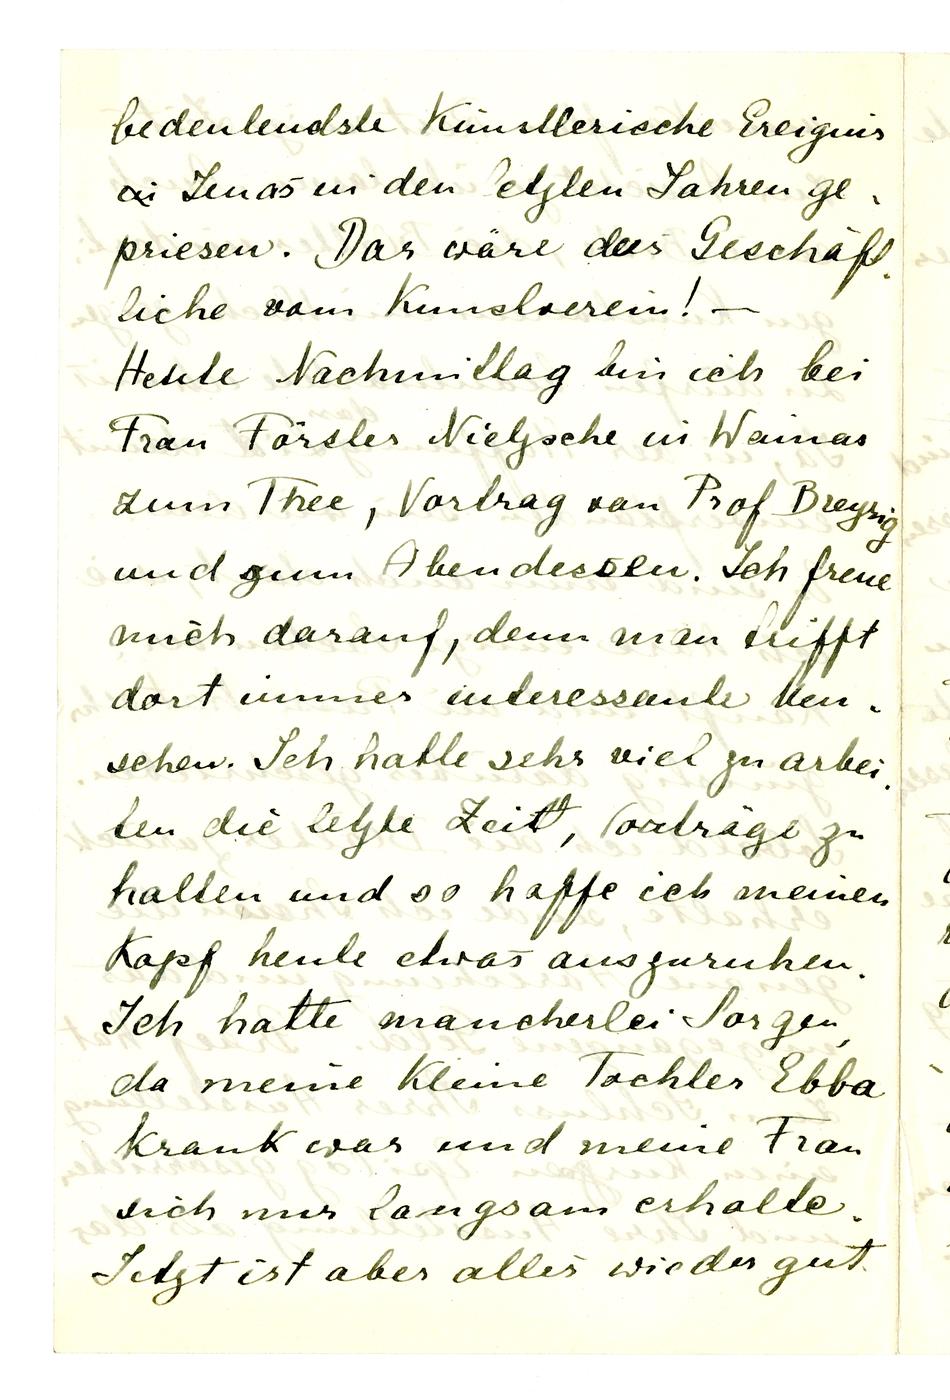 bedeutendste Künstlerische Ereignis
Jenas in den letzten Jahren ge-
priesen. Das wäre das Geschäft-
liche vom Kunstverein! —
Heute Nachmittag bin ich bei
Frau Förster Nietzsche in Weimar
zum Thee, Vortrag von Prof Breysig
und zum Abendessen. Ich freue
mich darauf, denn man trifft
dort immer interessante Men-
schen. Ich hatte sehr viel zu arbei-
ten die letzte Zeit, Vorträge zu
halten und so hoffe ich meinen
Kopf heute etwas auszuruhen.
Ich hatte mancherlei Sorgen,
da meine Kleine Tochter Ebba
krank war und meine Frau
sich nur langsam erholte.
Jetzt ist aber alles wieder gut.